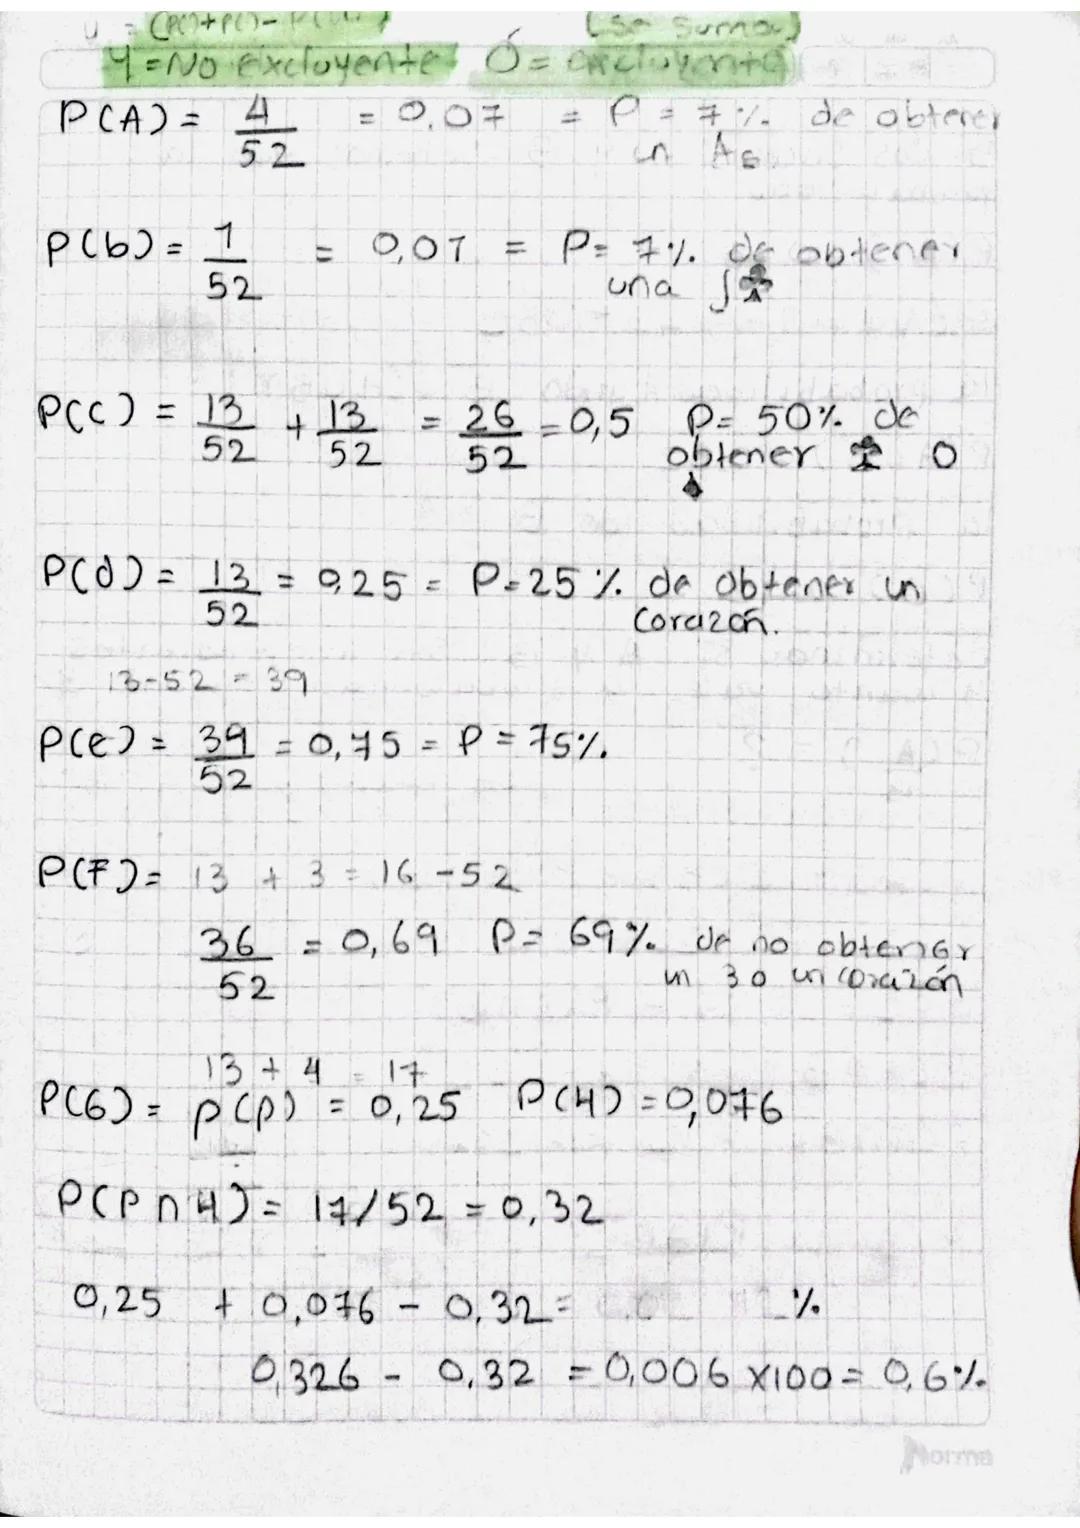 (Se suma)
Y = No excluyente Ó = excluyente
P(A) = 4/52 = 0.07 = P = 7% de obtener
un As
P(b) = 1/52 = 0,01 = P= 1% de obtener
una J♣
P(c) = 13/52 + 13/52 = 26/52 = 0,5 P= 50% de
obtener ♣ O
♠
P(d) = 13/52 = 0,25 = P=25% de obtener un
Corazón.
13-52 = 39
P(e) = 39/52 = 0,75 = P = 75%.
P(F) = 13 + 3 = 16 -52
36/52 = 0,69 P= 69% de no obtener
un 3 o un corazón
13 + 4 = 17
P(G) = P(P) = 0,25 P(4) = 0,076
P(P ∩ 4) = 17/52 = 0,32
0,25 + 0,076 - 0,32 = %
0,326 - 0,32 = 0,006 x100 = 0,6%
Norma